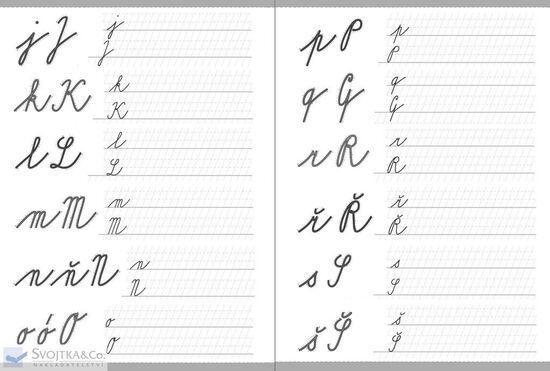 j J
j
J
k K
k
K
l L
l
L
m M
m
M
n ň N
n
N
o ó O
o
O
SVOJTKA&Co.
NAKLADATELSTVÍ
p P
p
P
q Q
q
Q
r R
r
R
ř Ř
ř
Ř
s S
s
S
š Š
š
Š